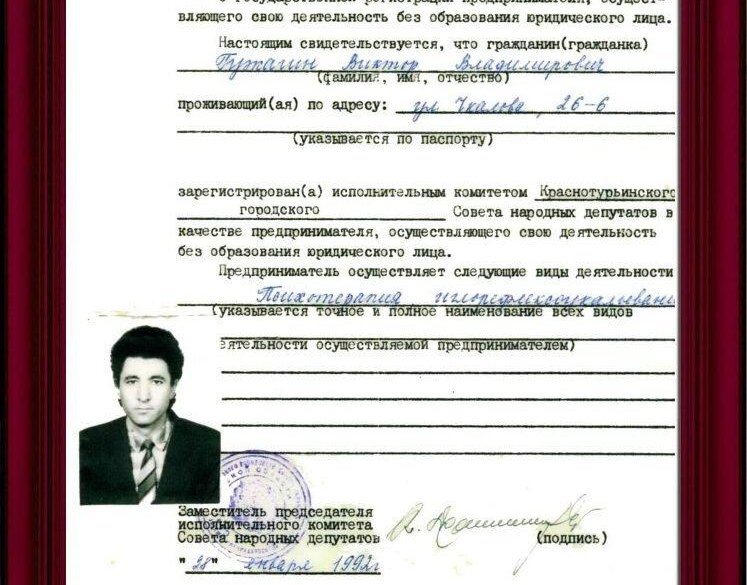 вляющего свою деятельность без образования юридического лица.
Настоящим свидетельствуется, что гражданин(гражданка)
Бужагин Виктор Владимирович
(фамилия, имя, отчество)
проживающий(ая) по адресу: ул Чкалова, 26-6
(указывается по паспорту)
зарегистрирован(а) исполнительным комитетом Краснотурьинского
городского Совета народных депутатов в
качестве предпринимателя, осуществляющего свою деятельность
без образования юридического лица.
Предприниматель осуществляет следующие виды деятельности
Психотерапия
(указывается точное и полное наименование всех видов
еятельности осуществляемой предпринимателем)
Заместитель председателя
исполнительного комитета
Совета народных депутатов (подпись)
"28" января 1992г